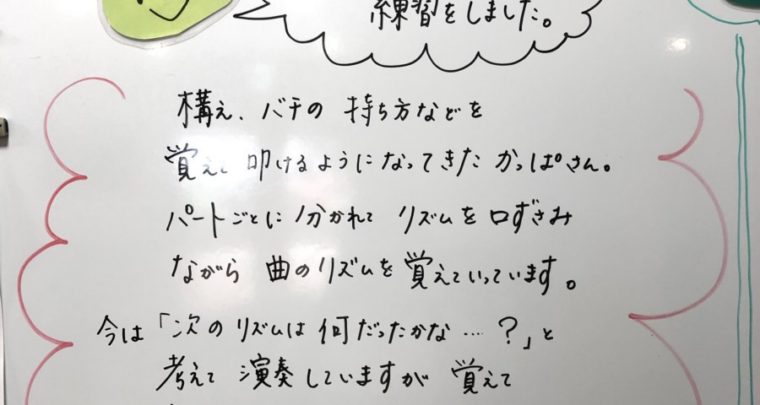 練習をしました。
構え、バチの 持ち方などを
覚えて 叩けるようになってきた かっぱさん。
パートごとに 分かれて リズムを口ずさみ
ながら 曲のリズムを 覚えていっています。
今は「次の リズムは 何だったかな…?」と
考えて 演奏していますが 覚えて